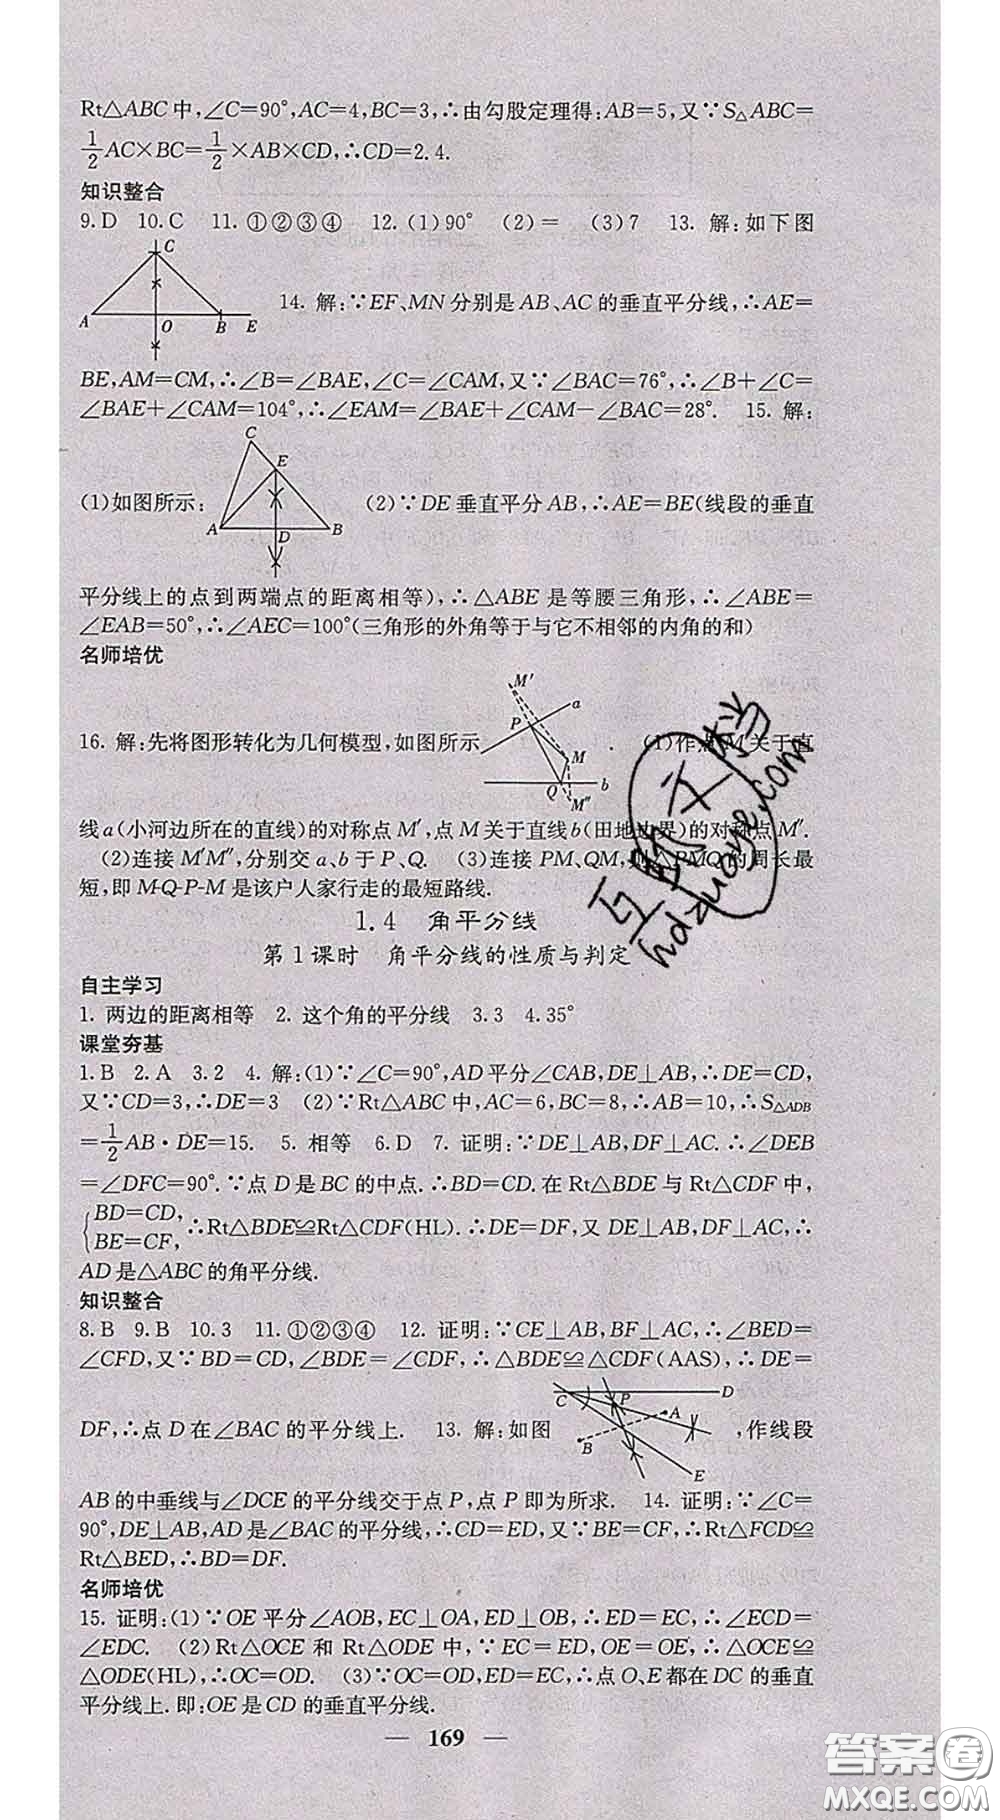 Rt△ABC中,∠C=90°,AC=4,BC=3,∴由勾股定理得:AB=5,又∵S△ABC=
1/2AC×BC=1/2×AB×CD,∴CD=2.4.
知识整合
9.D 10.C 11.①②③④ 12.(1)90° (2)= (3)7 13. 解:如下图
C
A O B E
14. 解:∵EF、MN分别是AB、AC的垂直平分线,∴AE=
BE,AM=CM,∴∠B=∠BAE,∠C=∠CAM,又∵∠BAC=76°,∴∠B+∠C=
∠BAE+∠CAM=104°,∴∠EAM=∠BAE+∠CAM-∠BAC=28°. 15. 解:
C
E
A D B
(1)如图所示: (2)∵DE垂直平分AB,∴AE=BE(线段的垂直
平分线上的点到两端点的距离相等),∴△ABE是等腰三角形,∴∠ABE=
∠EAB=50°,∴∠AEC=100°(三角形的外角等于与它不相邻的内角的和)
名师培优
M′
a
P
M
Q b
M″
16. 解:先将图形转化为几何模型,如图所示 . (1)作点M关于直
线a(小河边所在的直线)的对称点M′,点M关于直线b(田地边界)的对称点M″.
(2)连接M′M″,分别交a、b于P、Q. (3)连接PM、QM,则△PMQ的周长最
短,即M-Q-P-M是该户人家行走的最短路线.
1.4 角平分线
第1课时 角平分线的性质与判定
自主学习
1. 两边的距离相等 2. 这个角的平分线 3.3 4.35°
课堂夯基
1.B 2.A 3.2 4. 解:(1)∵∠C=90°,AD平分∠CAB,DE⊥AB,∴DE=CD,
又∵CD=3,∴DE=3 (2)∵Rt△ABC中,AC=6,BC=8,∴AB=10,∴S△ADB
=1/2AB·DE=15. 5. 相等 6.D 7. 证明:∵DE⊥AB,DF⊥AC.∴∠DEB
=∠DFC=90°.∵点D是BC的中点.∴BD=CD.在Rt△BDE与Rt△CDF中,
{BD=CD,
BE=CF, ∴Rt△BDE≌Rt△CDF(HL).∴DE=DF,又DE⊥AB,DF⊥AC,∴
AD是△ABC的角平分线.
知识整合
8.B 9.B 10.3 11.①②③④ 12. 证明:∵CE⊥AB,BF⊥AC,∴∠BED=
∠CFD,又∵BD=CD,∠BDE=∠CDF,∴△BDE≌△CDF(AAS),∴DE=
C P D
A
B
E
DF,∴点D在∠BAC的平分线上. 13. 解:如图 ,作线段
AB的中垂线与∠DCE的平分线交于点P,点P即为所求. 14. 证明:∵∠C=
90°,DE⊥AB,AD是∠BAC的平分线,∴CD=ED,又∵BE=CF,∴Rt△FCD≌
Rt△BED,∴BD=DF.
名师培优
15. 证明:(1)∵OE平分∠AOB,EC⊥OA,ED⊥OB,∴ED=EC,∴∠ECD=
∠EDC. (2)Rt△OCE和Rt△ODE中,∵EC=ED,OE=OE,∴△OCE≌
△ODE(HL),∴OC=OD. (3)∵OC=OD,ED=EC,∴点O、E都在DC的垂直
平分线上.即:OE是CD的垂直平分线.
— 169 —
互助文档
hdzuoye.com
答案圈
MXQE.COM